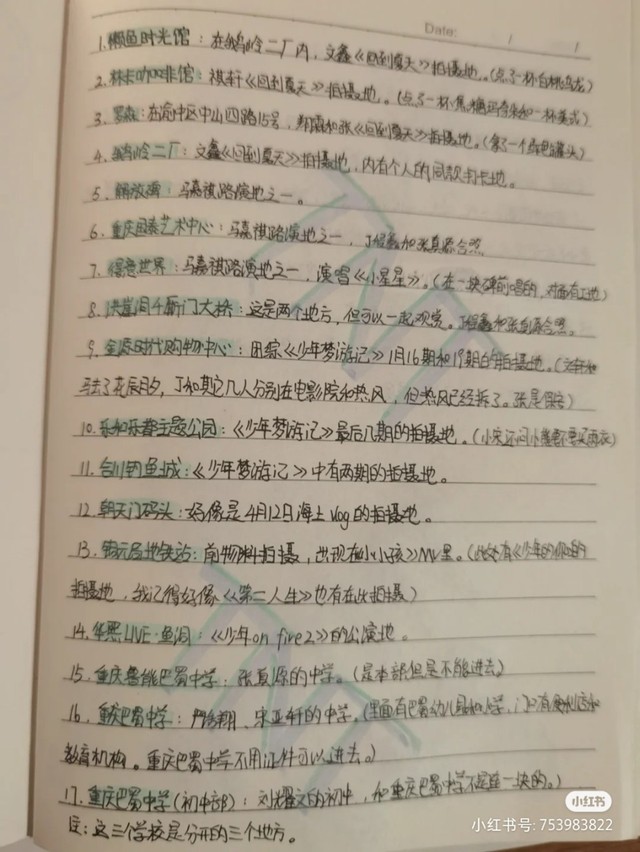 Date: / /
1.懒鱼时光馆：在鹅岭二厂内，文鑫《回到夏天》拍摄地。(点了一杯白桃乌龙)
2.林卡咖啡馆：祺轩《回到夏天》拍摄地。(点了一杯焦糖玛奇朵和一杯美式)
3.罗森：在渝中区中山四路15号，翔霖和张《回到夏天》拍摄地。(拿了一个罐头)
4.鹅岭二厂：文鑫《回到夏天》拍摄地，内有个人的同款打卡地。
5.解放碑：马嘉祺路演地之一。
6.重庆国泰艺术中心：马嘉祺路演地之一，丁程鑫和张真源合照
7.得意世界：马嘉祺路演地之一，演唱《小星星》。(在一块碑前唱的，对面有工地)
8.洪崖洞千厮门大桥：这是两个地方，但可以一起观赏。丁程鑫和张真源合照。
9.金源时代购物中心：团综《少年梦游记》1月16期和19期的拍摄地。(文轩和
马去了花辰月夕，丁和其它几人分别在电影院和热风，但热风已经拆了。张是保安)
10.乐和乐都主题公园：《少年梦游记》最后几期的拍摄地。(小宋还问小熊要不要买雨衣)
11.合川钓鱼城：《少年梦游记》中有两期的拍摄地。
12.朝天门码头：好像是4月12日海上vlog的拍摄地。
13.铜元局地铁站：前物料拍摄，出现在《小小孩》MV里。(此处有《少年的你》的
拍摄地，我记得好像《第二人生》也有在此拍摄)
14.华熙LIVE·鱼洞：《少年on fire2》的公演地。
15.重庆鲁能巴蜀中学：张真源的中学。(是本部但是不能进去)
16.重庆巴蜀中学：严浩翔、宋亚轩的中学。(里面有巴蜀幼儿园和小学，门口有便利店和
教育机构。重庆巴蜀中学不用证件可以进去。)
17.重庆巴蜀中学(初中部)：刘耀文的初中，和重庆巴蜀中学不是连一块的。)
注：这三个学校是分开的三个地方。
小红书
小红书号：753983822